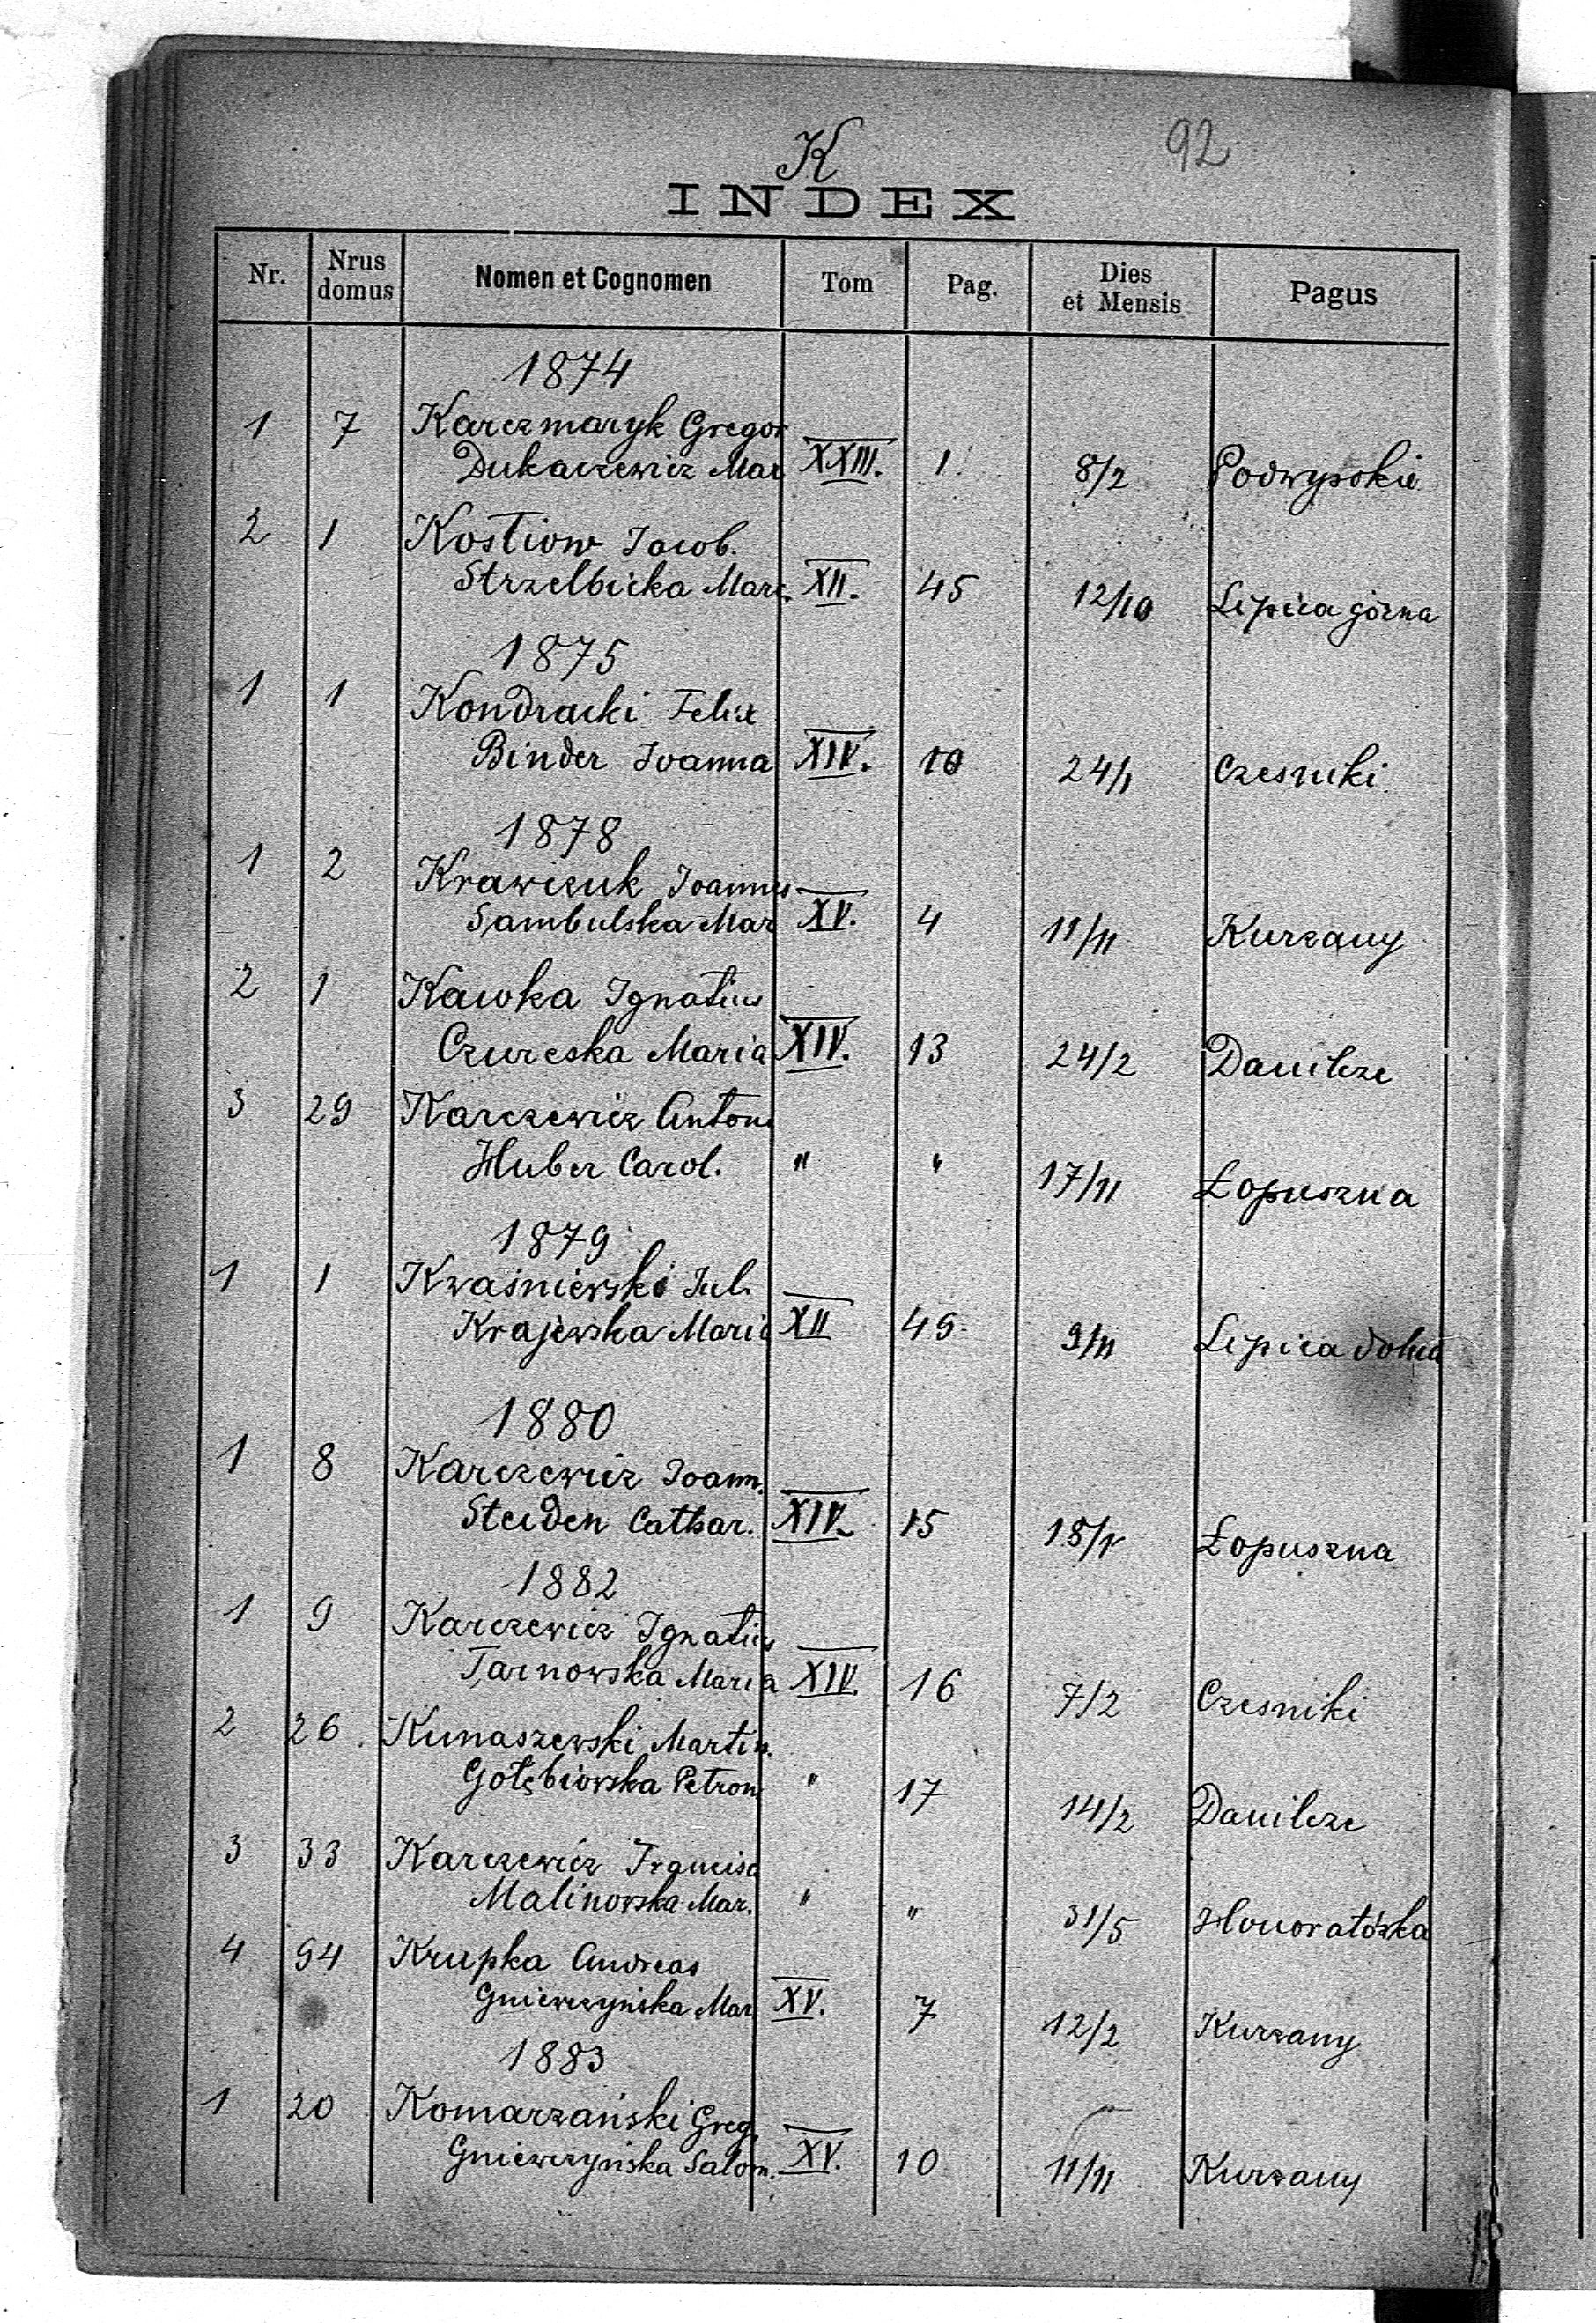 K
92
INDEX
Nr. Nrus domus Nomen et Cognomen Tom Pag. Dies et Mensis Pagus
1874
1 7 Karczmaryk Gregor
Dukaczewicz Mar XXIII. 1. 8/2 Podwysokie
2 1 Kostiow Jacob.
Strzelbicka Mar. XII. 45 12/10 Lipica górna
1875
1 1 Kondracki Felix
Binder Joanna XIV. 10 24/1 Czesniki
1878
1 2 Krawczuk Joannes
Sambulska Mar XV. 4 11/11 Kurzany
2 1 Kawka Ignatius
Maria XIV. 13 24/2 Danilcze
3 29 Karczewicz Anton
Huber Carol. " " 17/11 Łopuszna
1879
1 1 Kwaśniewski Jul.
Krajewska Maria XII 49 9/11 Lipica dolna
1880
1 8 Karczewicz Joann.
Cathar. XIV. 15 18/1 Łopuszna
1882
1 9 Karczewicz Ignatius
Tarnowska Maria XIV. 16 7/2 Czesniki
2 26. Kunaszewski Martin.
Gołębiowska Petron " 17 14/2 Danilcze
3 33 Karczewicz Francisc
Malinowska Mar. " " 31/5 Honoratówka
4 94 Krupka Andreas
Gniewczyńska Mar XV. 7 12/2 Kurzany
1883
1 20 Komarzański Greg.
Gniewczyńska Salom. XV. 10 11/11 Kurzany